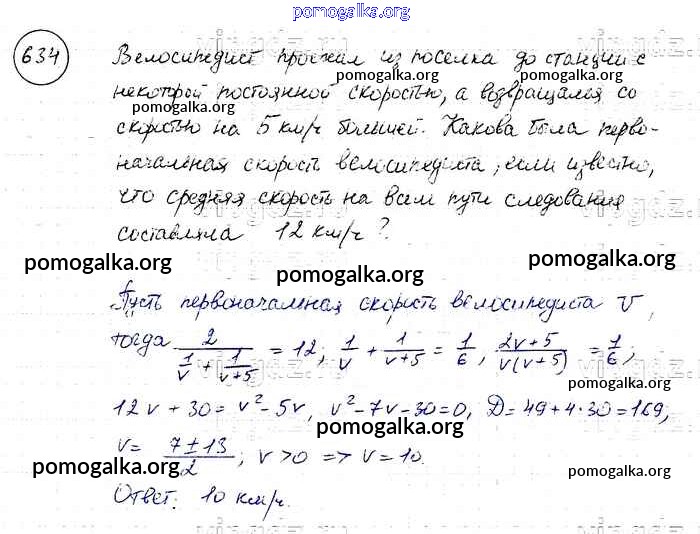 pomogalka.org
634 Велосипедист проехал из поселка до станции с
pomogalka.org pomogalka.org
некоторой постоянной скоростью, а возвращался со
pomogalka.org
скоростью на 5 км/ч большей. Какова была перво-
pomogalka.org
начальная скорость велосипедиста, если известно,
pomogalka.org pomogalka.org
что средняя скорость на всем пути следования
составляла 12 км/ч?
pomogalka.org pomogalka.org pomogalka.org
Пусть первоначальная скорость велосипедиста v,
тогда 2/(1/v + 1/(v+5)) = 12; 1/v + 1/(v+5) = 1/6, (2v+5)/(v(v+5)) = 1/6;
pomogalka.org
12v + 30 = v² - 5v, v² - 7v - 30 = 0, D = 49 + 4·30 = 169,
pomogalka.org
v = (7 ± 13)/2; v > 0 => v = 10.
pomogalka.org pomogalka.org
Ответ: 10 км/ч.